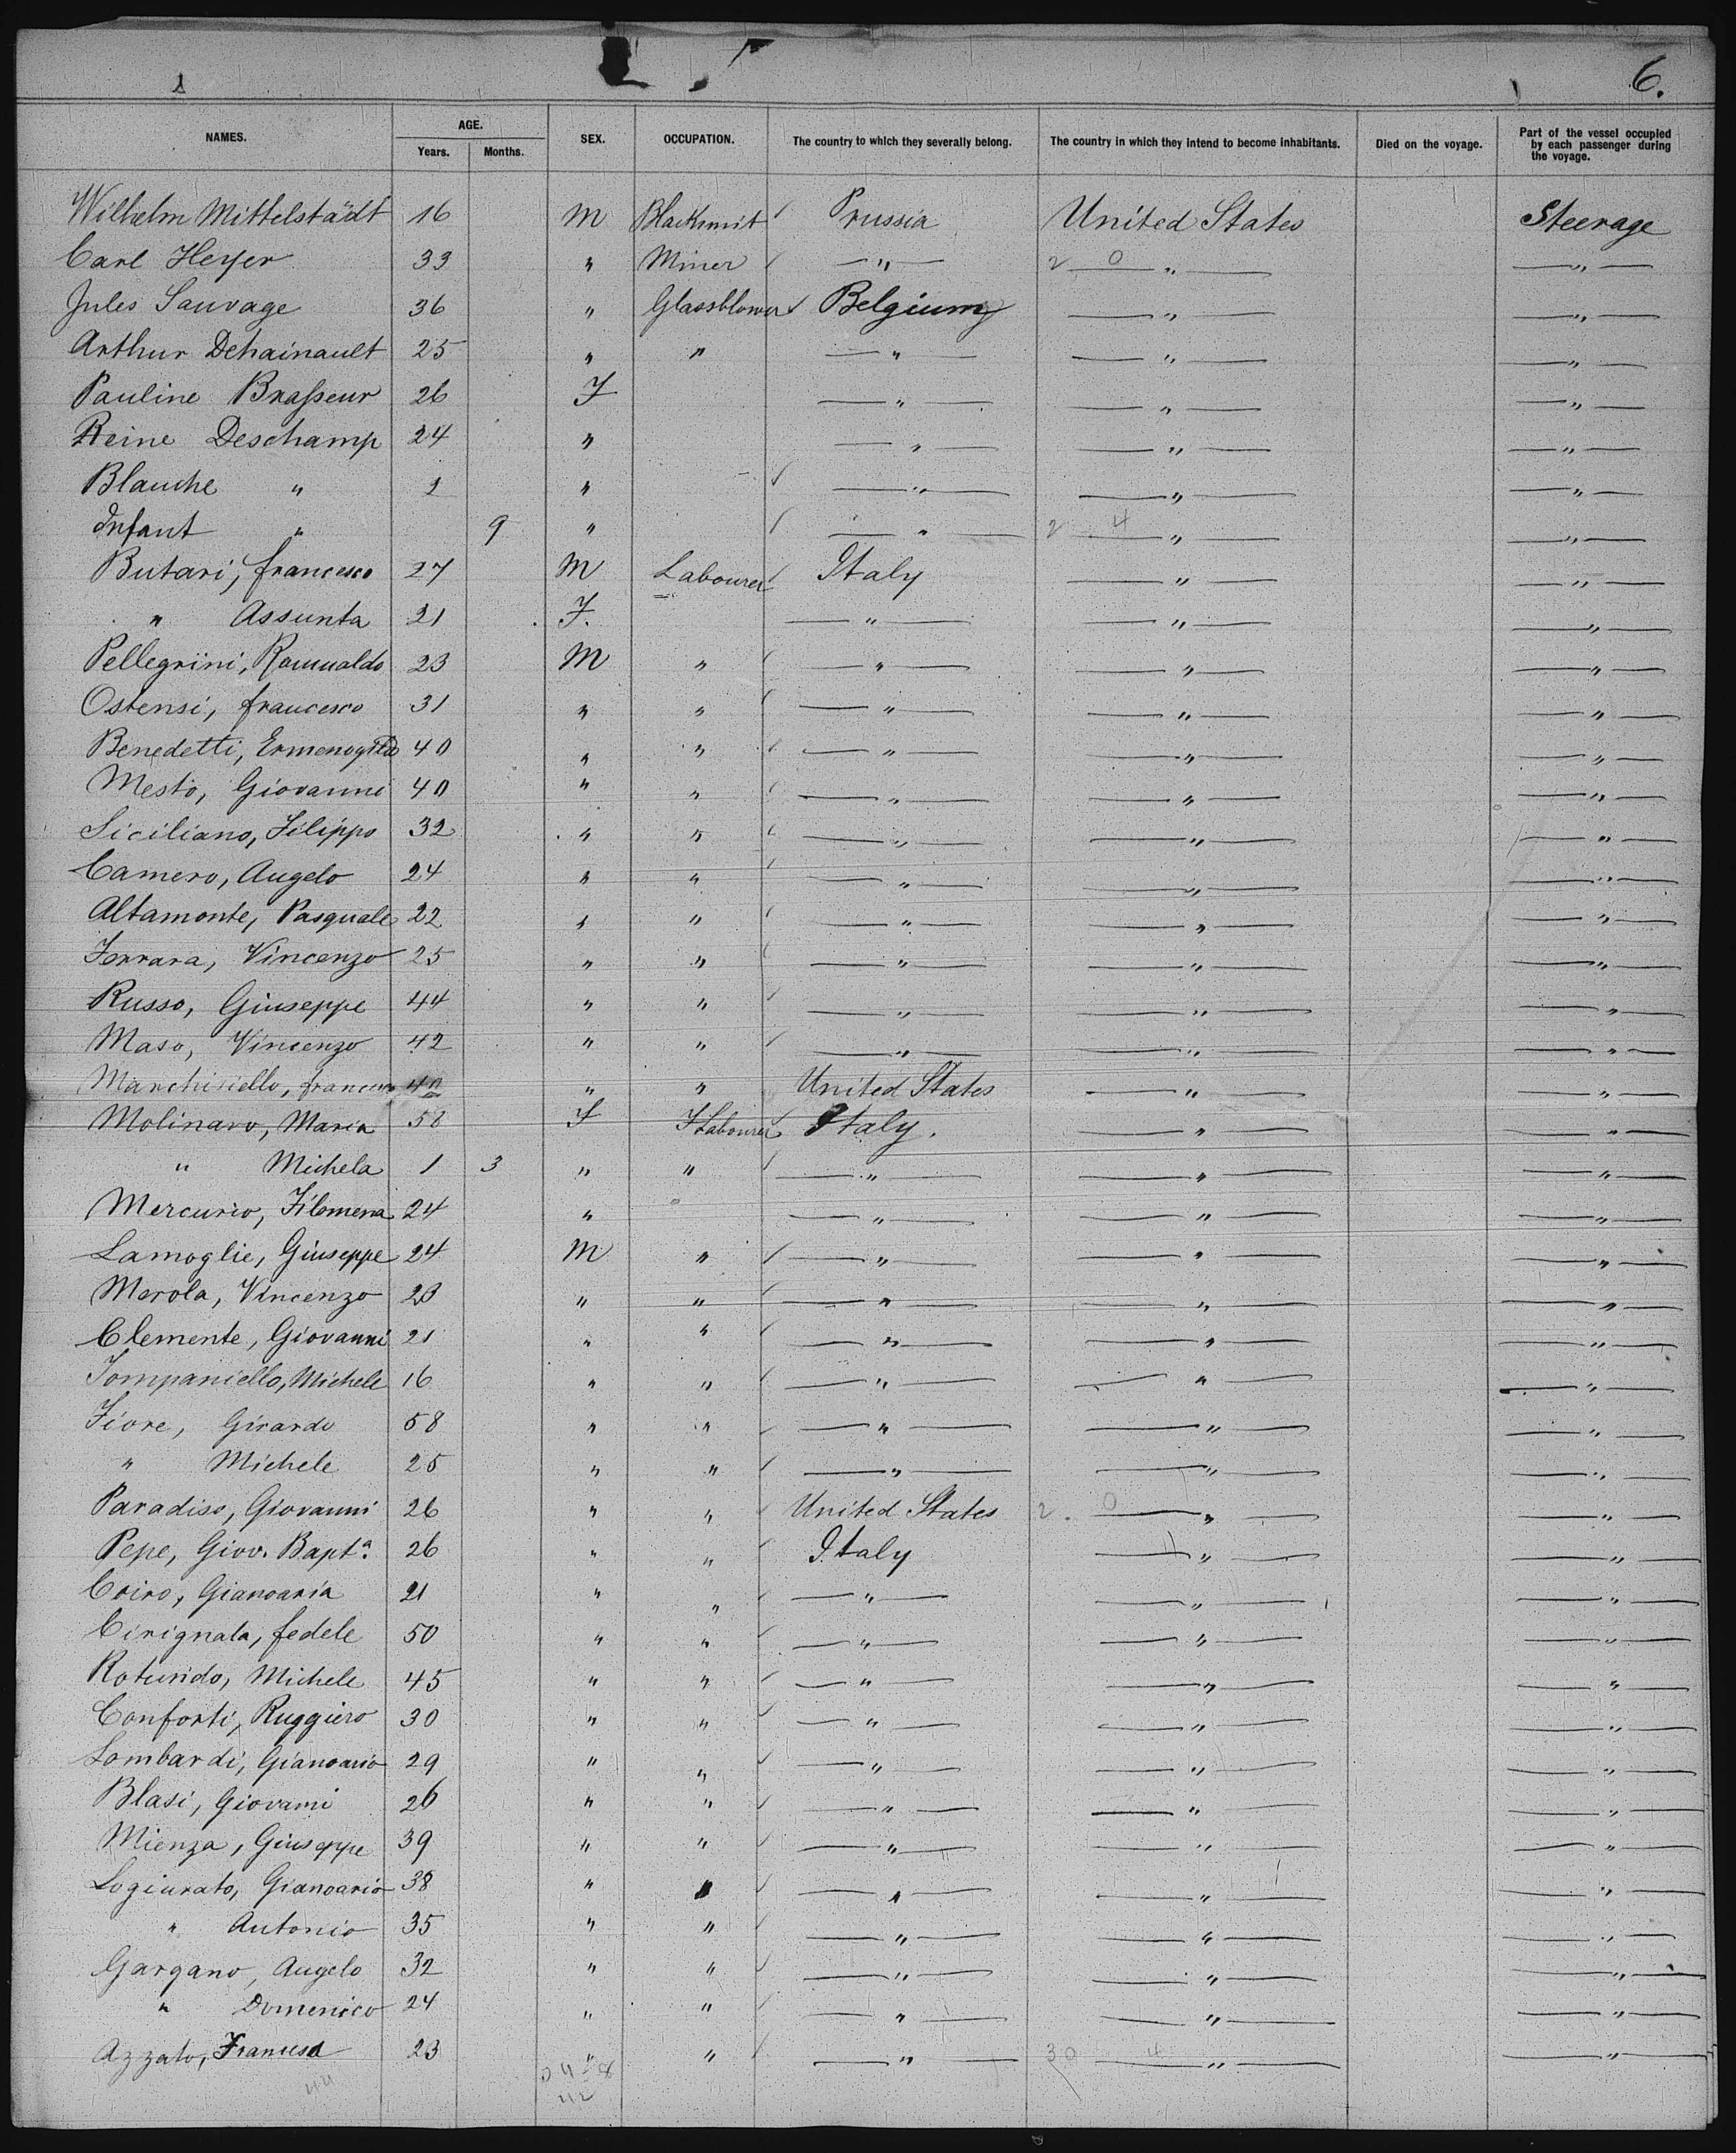 1 6.
NAMES. AGE. Years. Months. SEX. OCCUPATION. The country to which they severally belong. The country in which they intend to become inhabitants. Died on the voyage. Part of the vessel occupied by each passenger during the voyage.
Wilhelm Mittelstädt 16 M Blacksmit Prussia United States Steerage
Carl Heyer 33 " Miner " 2 0 " "
Jules Sauvage 36 " Glassblower Belgium " "
Arthur Dehainault 25 " " " " "
Pauline Brasseur 26 F " " "
Reine Deschamp 24 " " " "
Blanche " 1 " " " "
Infant " 9 " " 2 4 " "
Butari, francesco 27 M Labourer Italy " "
" Assunta 21 F. " " "
Pellegrini, Romualdo 23 M " " " "
Ostensi, francesco 31 " " " " "
Benedetti, Ermenogildo 40 " " " " "
Mesto, Giovanni 40 " " " " "
Siciliano, Filippo 32 " " " " "
Camero, Angelo 24 " " " " "
Altamonte, Pasquale 22 " " " " "
Ferrara, Vincenzo 25 " " " " "
Russo, Giuseppe 44 " " " " "
Maso, Vincenzo 42 " " " " "
Marchisiello, 40 " " United States " "
Molinaro, Maria 58 F Labourer Italy. " "
" Michela 1 3 " " " " "
Mercurio, Filomena 24 " " " "
Lamoglie, Giuseppe 24 M " " " "
Merola, Vincenzo 23 " " " " "
Clemente, Giovanni 21 " " " " "
Tompaniello, Michele 16 " " " " "
Fiore, Girardo 58 " " " " "
" Michele 25 " " " " "
Paradiso, Giovanni 26 " " United States 2. 0 " "
Pepe, Giov. Bapta. 26 " " Italy " "
Coiro, Gianoaria 21 " " " " "
Cirignala, fedele 50 " " " " "
Rotundo, Michele 45 " " " " "
Conforti, Ruggiero 30 " " " " "
Lombardi, Gianoario 29 " " " " "
Blasi, Giovanni 26 " " " " "
Mienza, Giuseppe 39 " " " " "
Logiurato, Gianoario 38 " " " " "
" Antonio 35 " " " " "
Gargano, Angelo 32 " " " " "
" Domenico 24 " " " " "
Azzato, 23 " " " 30 4 " "
44
42